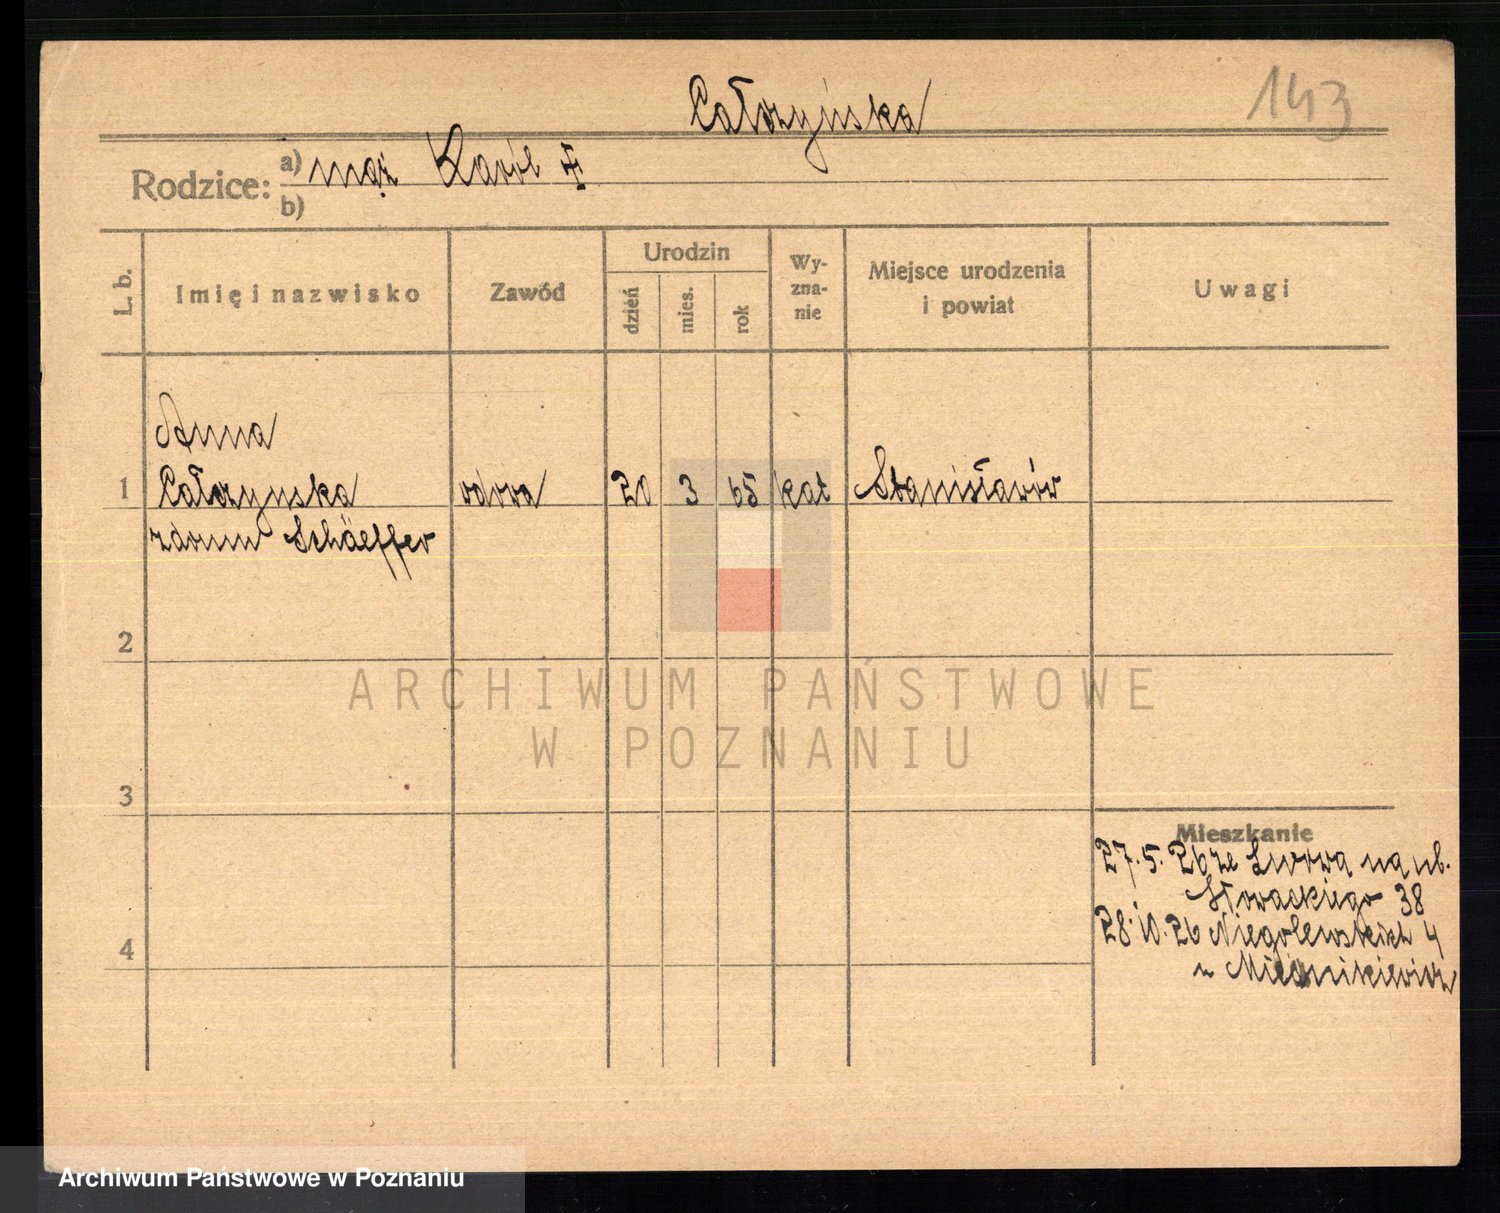 143
Całczyńska
Rodzice: a) mąż Karól ‡
b)
L. b. Imię i nazwisko Zawód Urodzin dzień mies. rok Wyznanie Miejsce urodzenia i powiat Uwagi
Anna
1 Całczynska wdowa 20 3 65 kat Stanisławów
zdomu Schäeffer
2
ARCHIWUM PAŃSTWOWE
W POZNANIU
3
Mieszkanie
27.5.26 ze Lwowa na ul.
Słowackiego 38
28.10.26 Niegolewskich 4
u
4
Archiwum Państwowe w Poznaniu